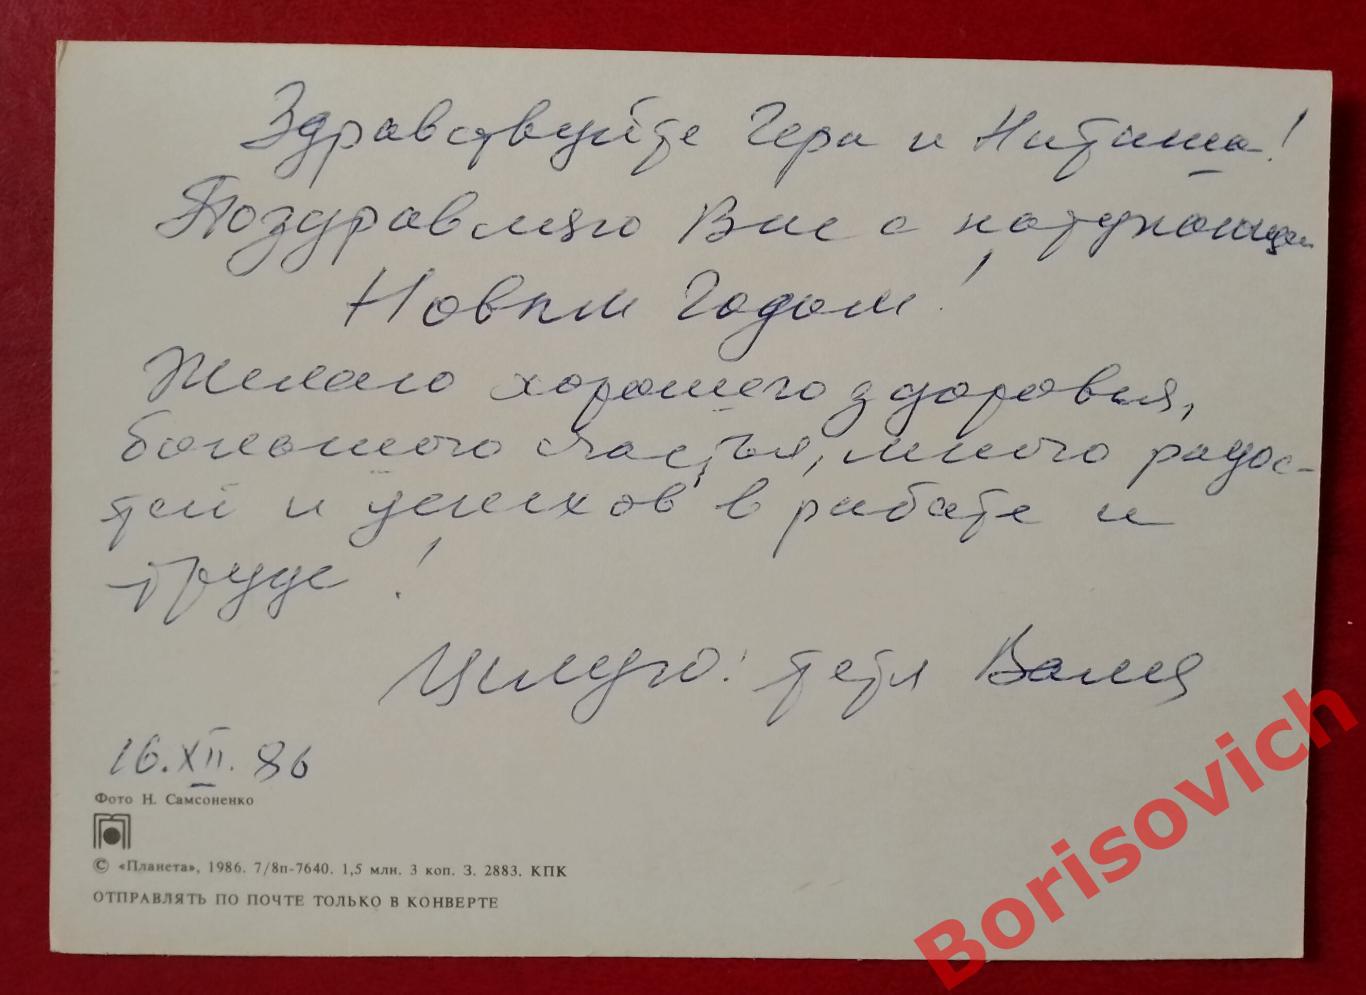 Здравствуйте Гера и Наташа!
Поздравляю Вас с наступающим
Новым Годом!
Желаю хорошего здоровья,
большого счастья, много радос-
тей и успехов в работе и
труде!
Целую: тётя Валя
16.XII.86
Фото Н. Самсоненко
© «Планета», 1986. 7/8п-7640. 1,5 млн. 3 коп. З. 2883. КПК
ОТПРАВЛЯТЬ ПО ПОЧТЕ ТОЛЬКО В КОНВЕРТЕ
Borisovich